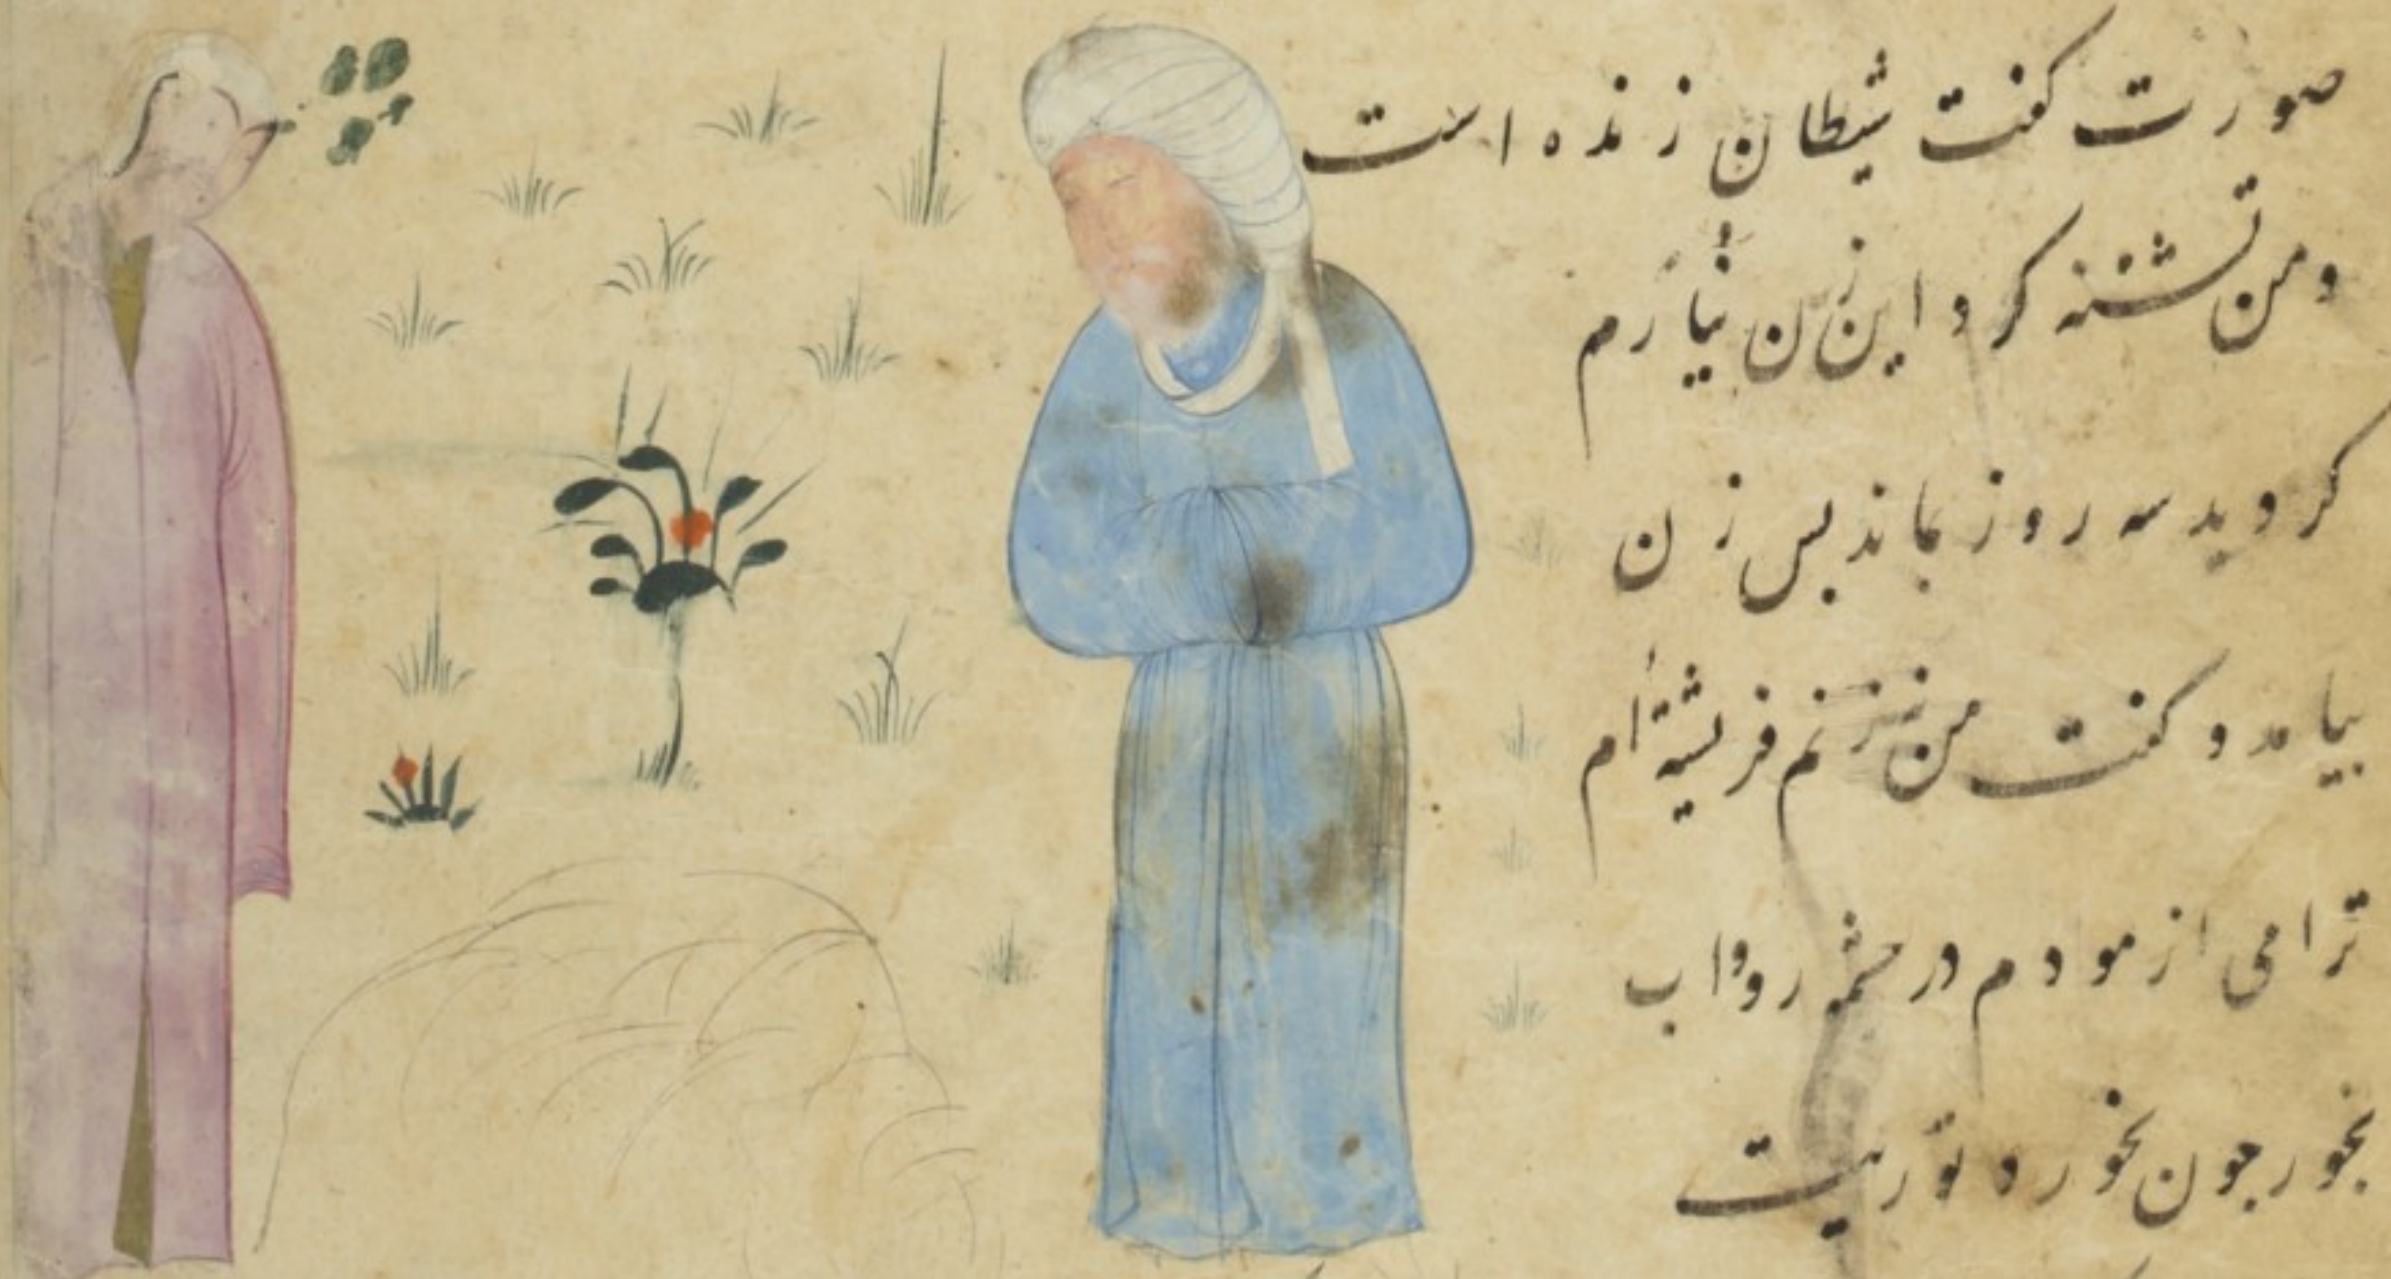 صورت کفت شیطان زنده است
و من تشنه کرد این زن نیارم
کردید سه روز بماند بس زن
بیامد و کفت من نه زنم فریشته ام
ترا می ازمودم در حشمه رو و اب
بخور جون بخورد توریت